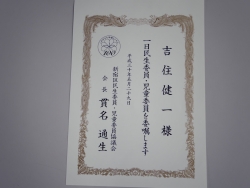 吉住健一様
一日民生委員・児童委員を委嘱します
平成三十年五月二十九日
新宿区民生委員・児童委員協議会
会長 貫名通生
100